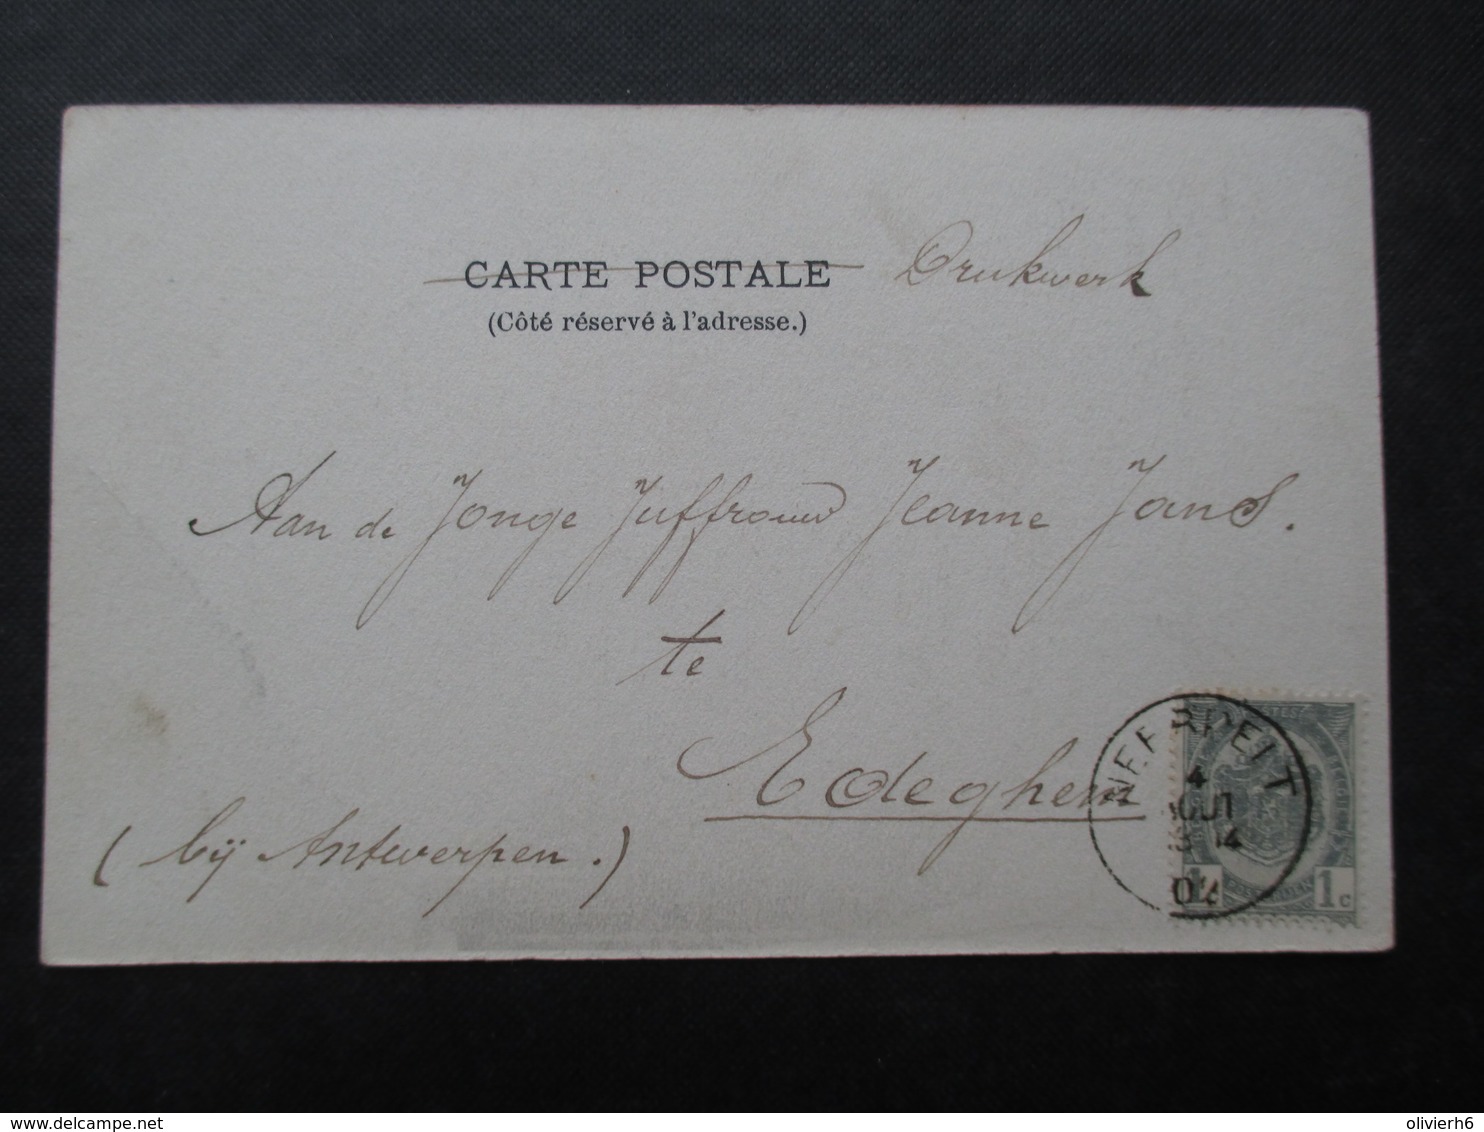 CARTE POSTALE Drukwerk
(Côté réservé à l'adresse.)
Aan de Jonge Juffrouw Jeanne Jans.
te
Edeghem
(bij Antwerpen.)
NEERPELT
4
AOUT
14
1c
delcampe.net
olivierh6